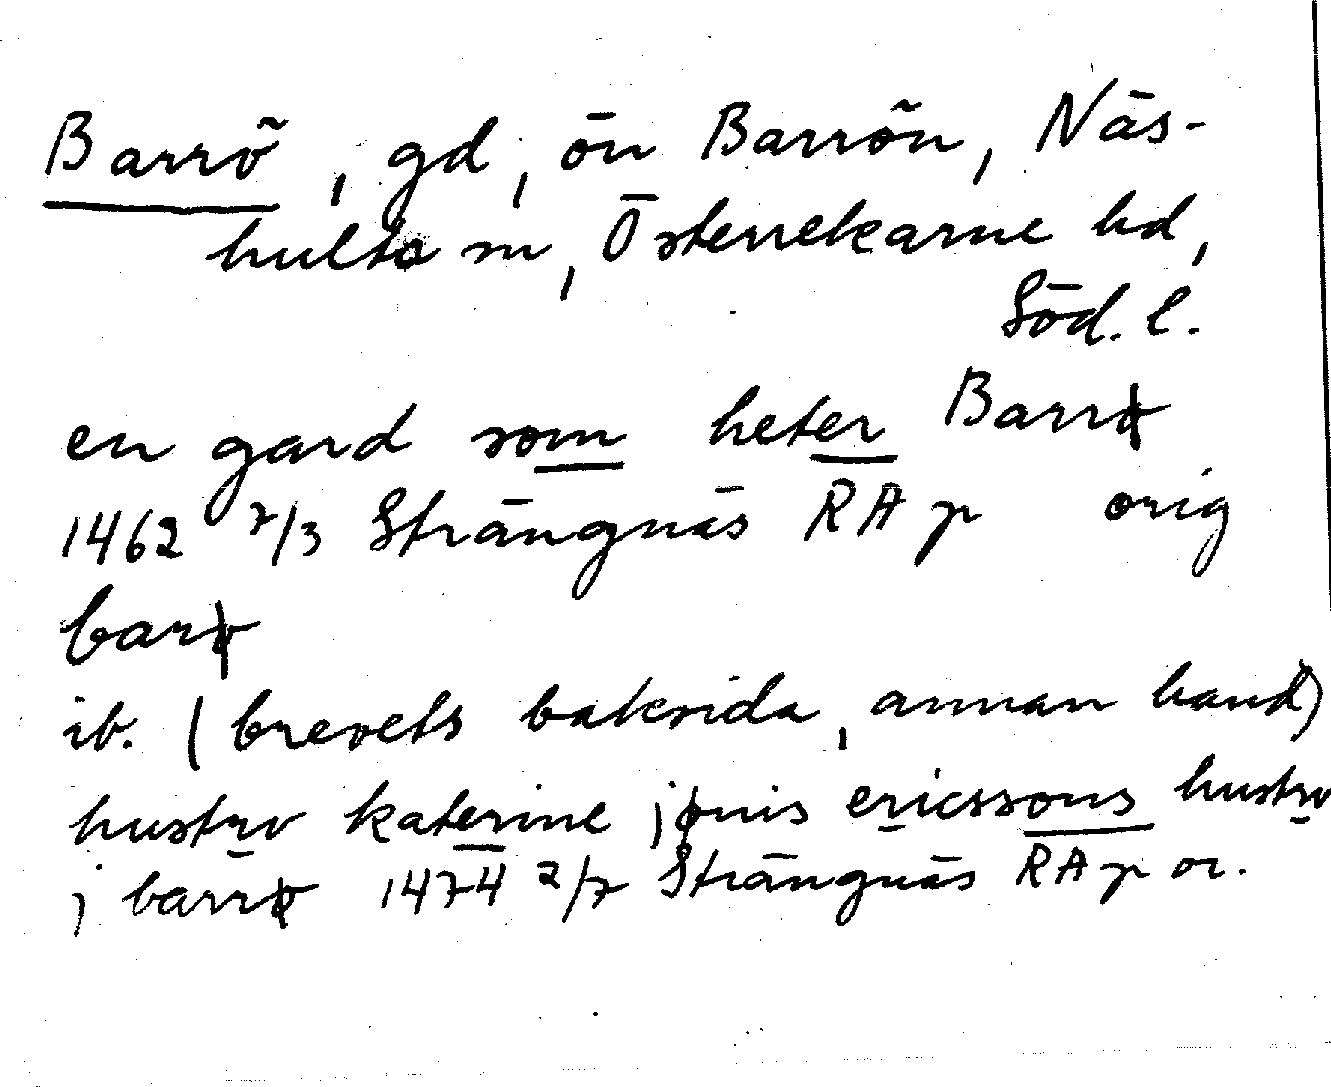 Barrö, gd, ön Barrön, Näs-
hulta sn, Österrekarne hd,
Söd. l.
en gard som heter Barrø
1462 7/3 Strängnäs RAp orig
barø
ib. (brevets baksida, annan hand)
hustrv katerine jønis ericssons hustrv
j barrø 1474 2/7 Strängnäs RAp or.